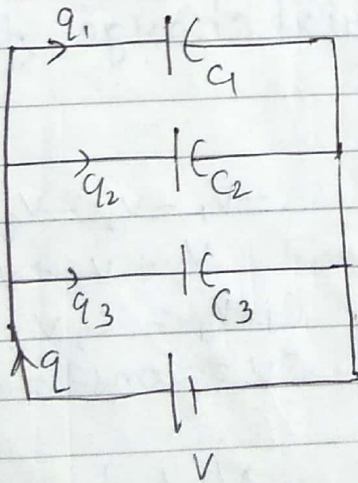 q1
C1
q2
C2
q3
C3
q
V